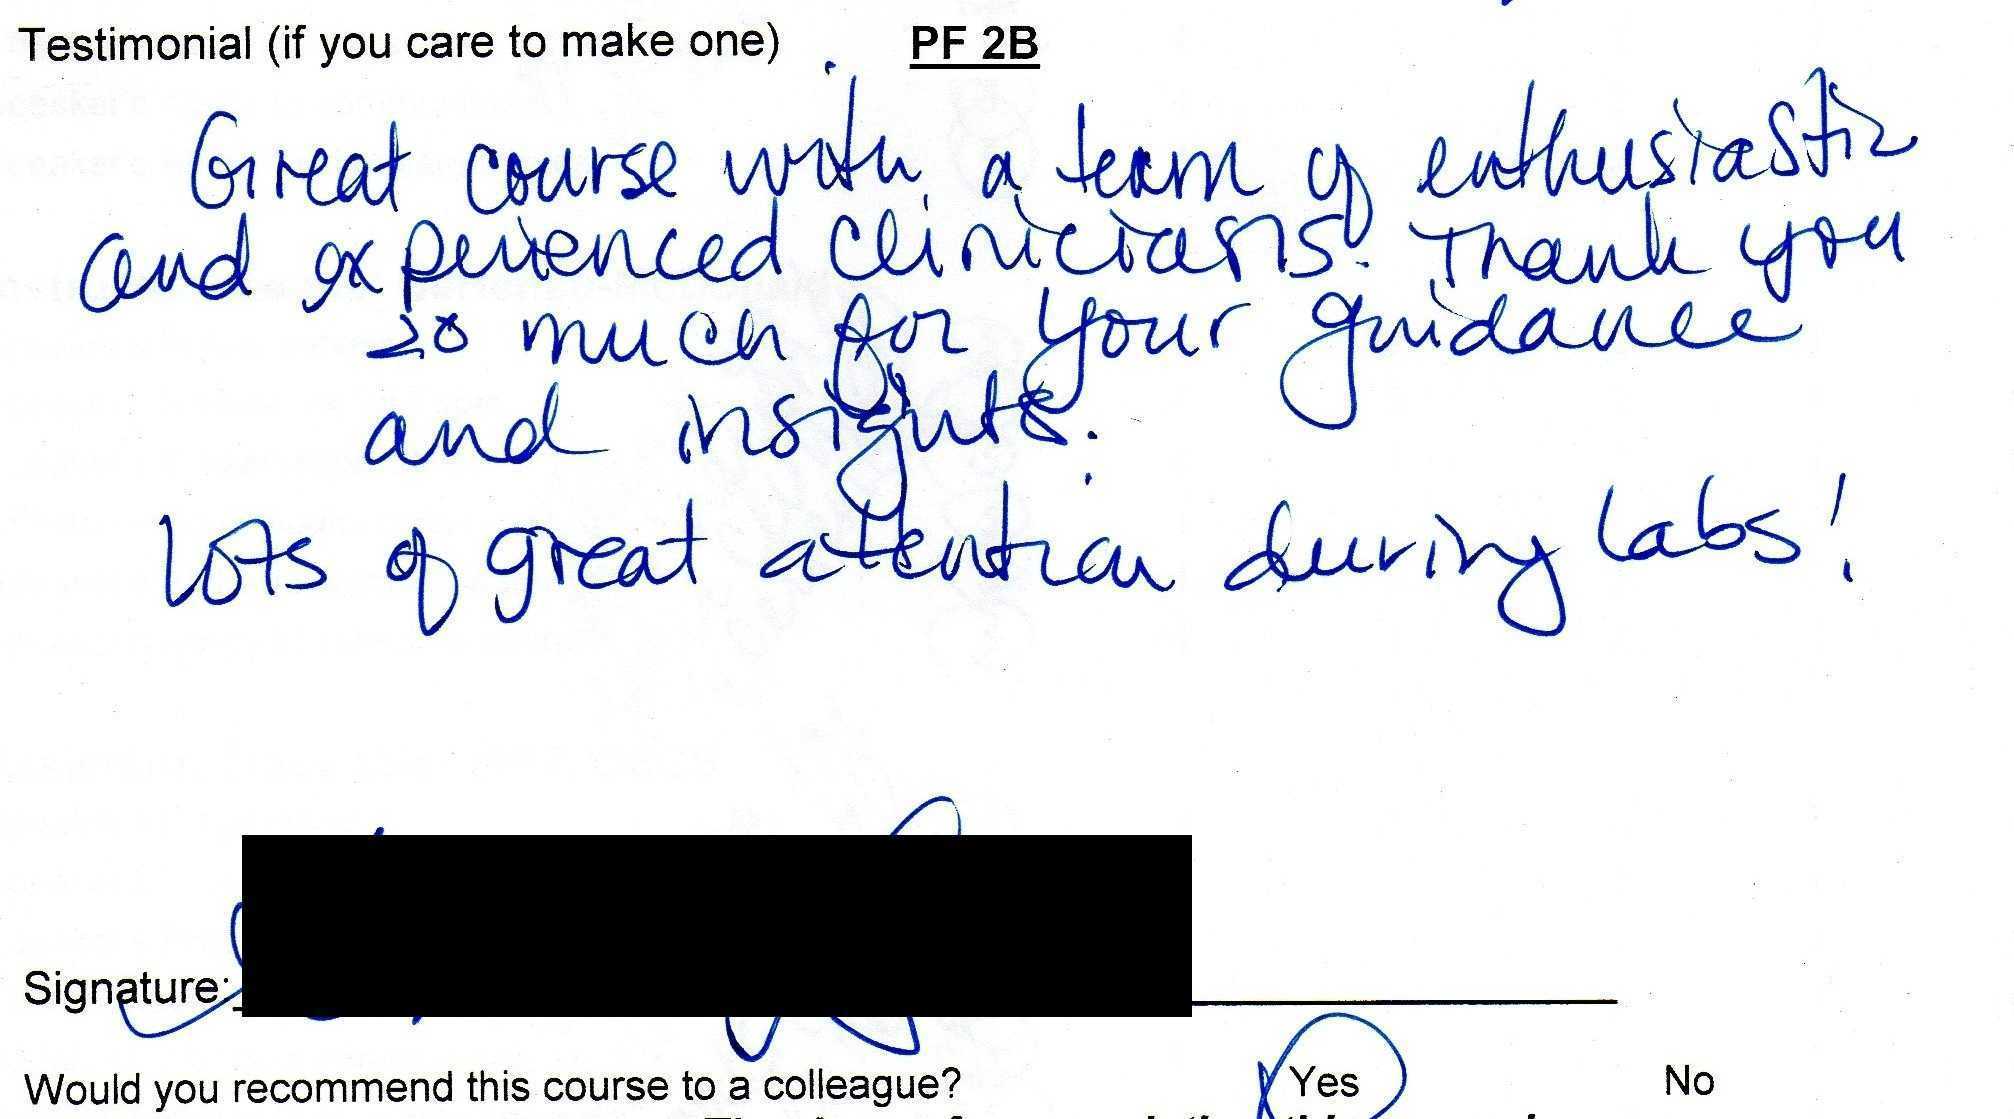 Testimonial (if you care to make one) PF 2B
Great course with a team of enthusiastic
and experienced clinicians. Thank you
so much for your guidance
and insights.
Lots of great atention during labs!
Signature:
Would you recommend this course to a colleague? Yes No